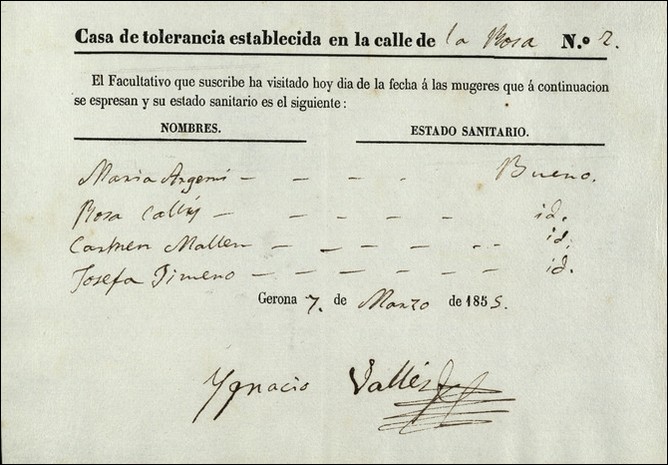 Casa de tolerancia establecida en la calle de la Rosa N.º 2.
El Facultativo que suscribe ha visitado hoy dia de la fecha á las mugeres que á continuacion
se espresan y su estado sanitario es el siguiente:
NOMBRES. ESTADO SANITARIO.
Maria Argemi – – – – Bueno.
Rosa – – – – – id.
Carmen Mallen – – – – – id.
Josefa Jimeno – – – – – id.
Gerona 7. de Marzo de 1855.
Ygnacio Vallés